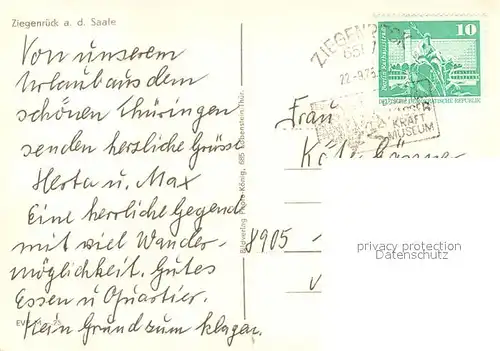 Ziegenrück a. d. Saale
Von unserem
Urlaub aus dem
schönen Thüringen
senden herzliche Grüsse
Herta u. Max
Eine herrliche Gegend
mit viel Wander-
möglichkeit. Gutes
Essen u Quartier.
Kein Grund zum klagen.
EVP
Bildverlag König, 685 Lobenstein/Thür.
ZIEGENRÜCK
22.-9.75
WASSER
KRAFT
MUSEUM
10
DEUTSCHE DEMOKRATISCHE REPUBLIK
Frau
8905
privacy protection
Datenschutz